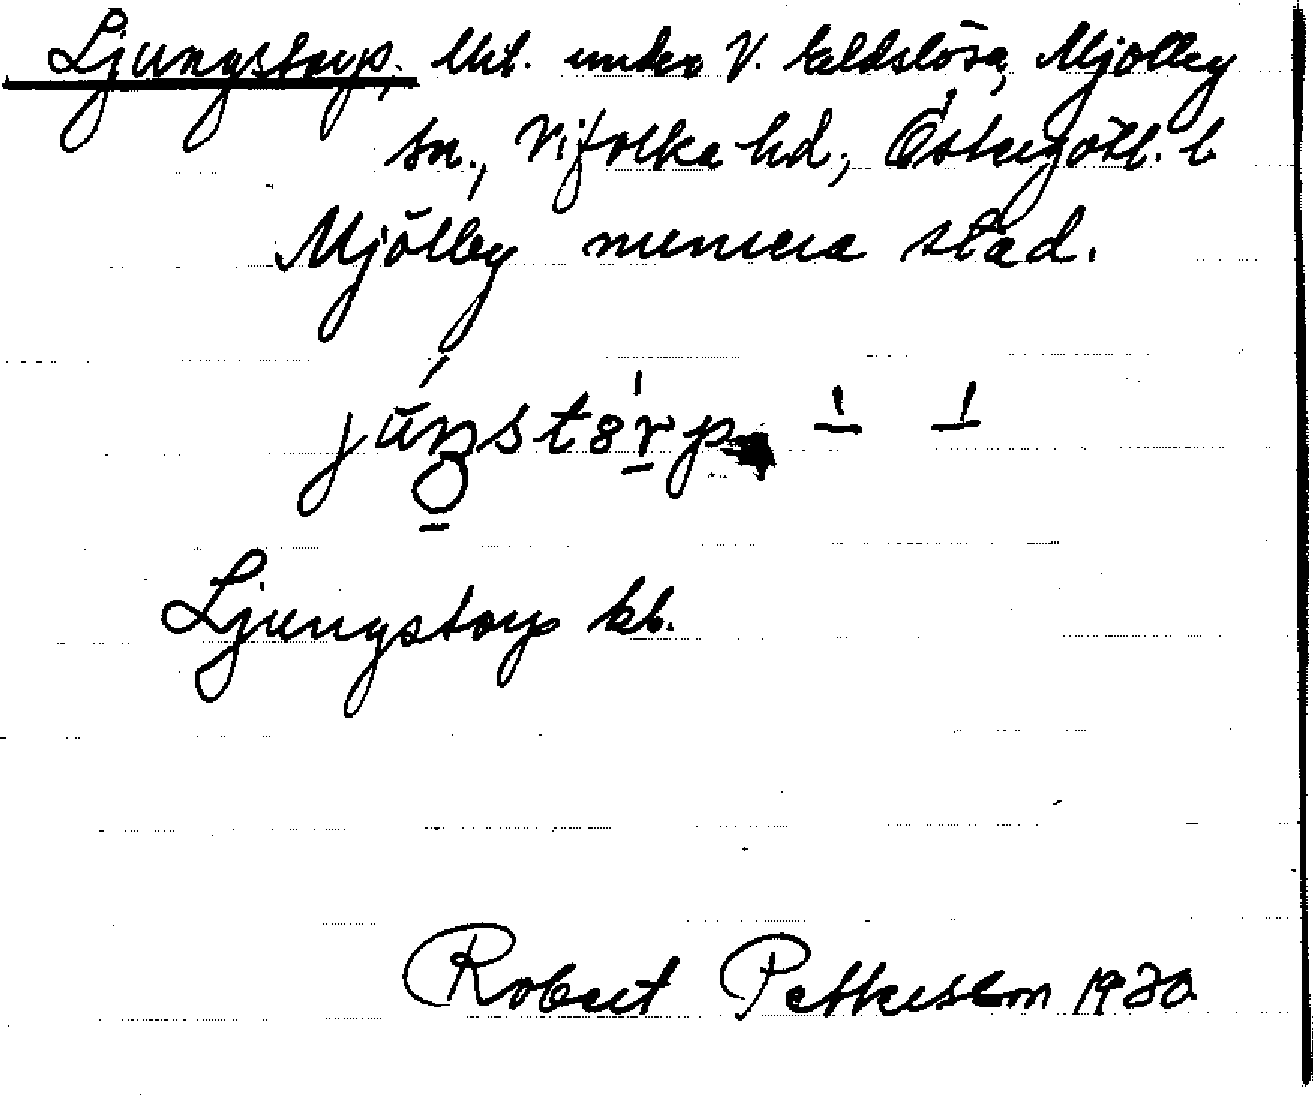 Ljungstorp, Utk. under V. Eldslösa, Mjölby
sn., Vifolka hd, Östergötl. l
Mjölby numera stad.
Ljungstorp kb.
Robert Pettersson 1930